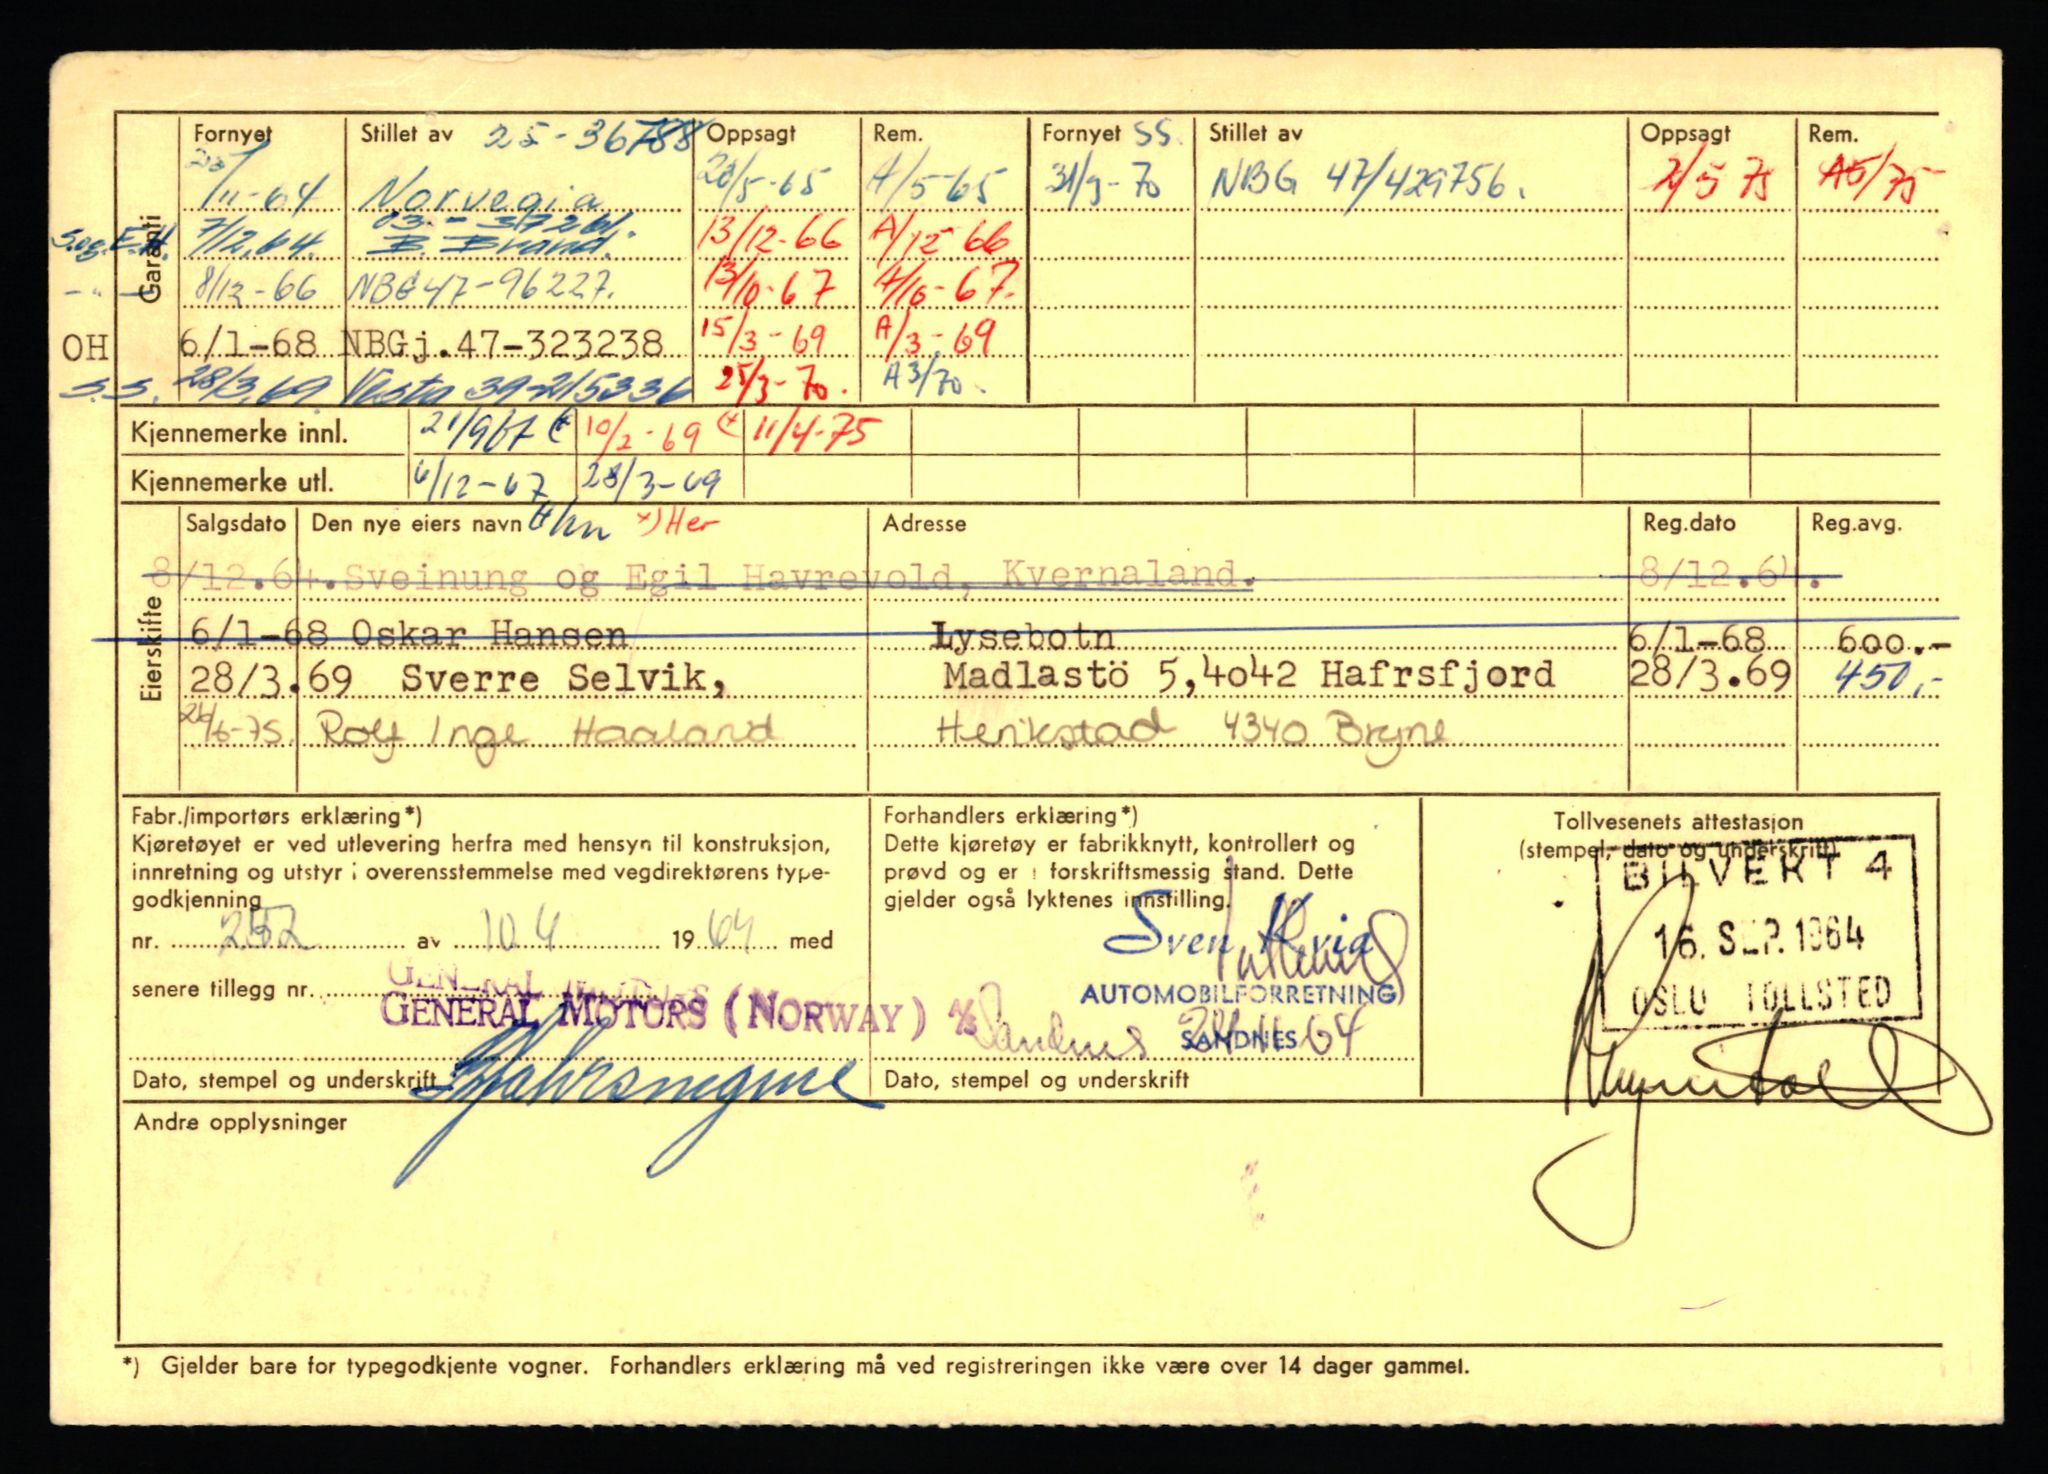 Fornyet Stillet av 25-36788 Oppsagt Rem. Fornyet SS. Stillet av Oppsagt Rem.
Garanti
/11-64 Norvegia 28/5-65 A/5-65 31/3-70 NBG 47/429756. 2/5 75 A5/75
S.og E.H. 7/12.64. 03-37261. B. Brand. 13/12-66 A/12-66
-"- 8/12-66 NBG 47-96227. 13/10-67 A/10-67.
OH 6/1-68 NBGj.47-323238 15/3-69 A/3-69
S.S. 28/3.69 Vesta 39-215336 25/3-70. A3/70.
Kjennemerke innl. 21/9 67 (* 10/2-69 (* 11/4-75
Kjennemerke utl. 6/12-67 28/3-69
Eierskifte
Salgsdato Den nye eiers navn *) Her Adresse Reg.dato Reg.avg.
8/12.64. Sveinung og Egil Havrevold, Kvernaland. 8/12.64.
6/1-68 Oskar Hansen Lysebotn 6/1-68 600.-
28/3.69 Sverre Selvik, Madlastö 5,4042 Hafrsfjord 28/3.69 450,-
24/6-75. Rolf Inge Haaland Henikstad 4340 Bryne
Fabr./importørs erklæring*)
Kjøretøyet er ved utlevering herfra med hensyn til konstruksjon,
innretning og utstyr i overensstemmelse med vegdirektørens type-
godkjenning
nr. 252 av 10 4 1964 med
senere tillegg nr.
GENERAL MOTORS
GENERAL MOTORS (NORWAY) A/S
Dato, stempel og underskrift
Forhandlers erklæring*)
Dette kjøretøy er fabrikknytt, kontrollert og
prøvd og er i forskriftsmessig stand. Dette
gjelder også lyktenes innstilling.
Sven Kvia
AUTOMOBILFORRETNING
SANDNES
Sandnes 24/11 64
Dato, stempel og underskrift
Tollvesenets attestasjon
(stempel, dato og underskrift)
BILVEKT 4
16. SEP. 1964
OSLO TOLLSTED
Andre opplysninger
*) Gjelder bare for typegodkjente vogner. Forhandlers erklæring må ved registreringen ikke være over 14 dager gammel.